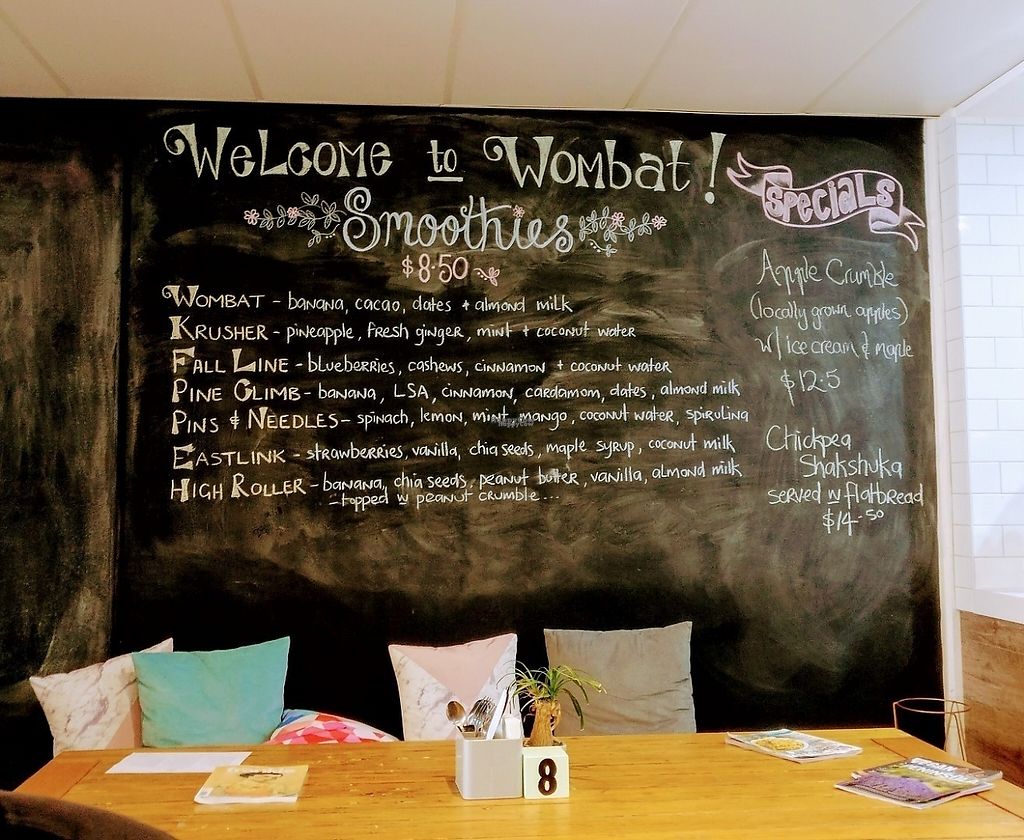 Welcome to Wombat!
Smoothies
$8.50
Wombat - banana, cacao, dates + almond milk
Krusher - pineapple, fresh ginger, mint + coconut water
Fall Line - blueberries, cashews, cinnamon + coconut water
Pine Climb - banana, LSA, cinnamon, cardamom, dates, almond milk
Pins & Needles - spinach, lemon, mint, mango, coconut water, spirulina
Eastlink - strawberries, vanilla, chia seeds, maple syrup, coconut milk
High Roller - banana, chia seeds, peanut butter, vanilla, almond milk
- topped w peanut crumble...
Specials
Apple Crumble
(locally grown apples)
w/ ice cream & maple
$12.5
Chickpea
Shakshuka
served w flatbread
$14.50
8